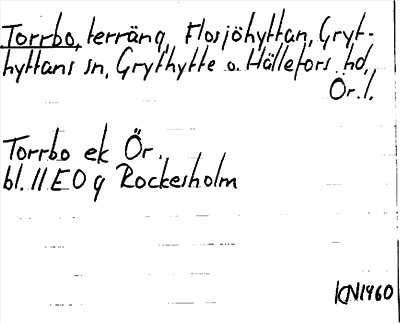 Torrbo, terräng, Flosjöhyttan, Gryt-
hyttans sn, Grythytte o. Hällefors hd,
Ör. l.
Torrbo ek Ör.
bl. 11 E 0 g Rockesholm
KN1960